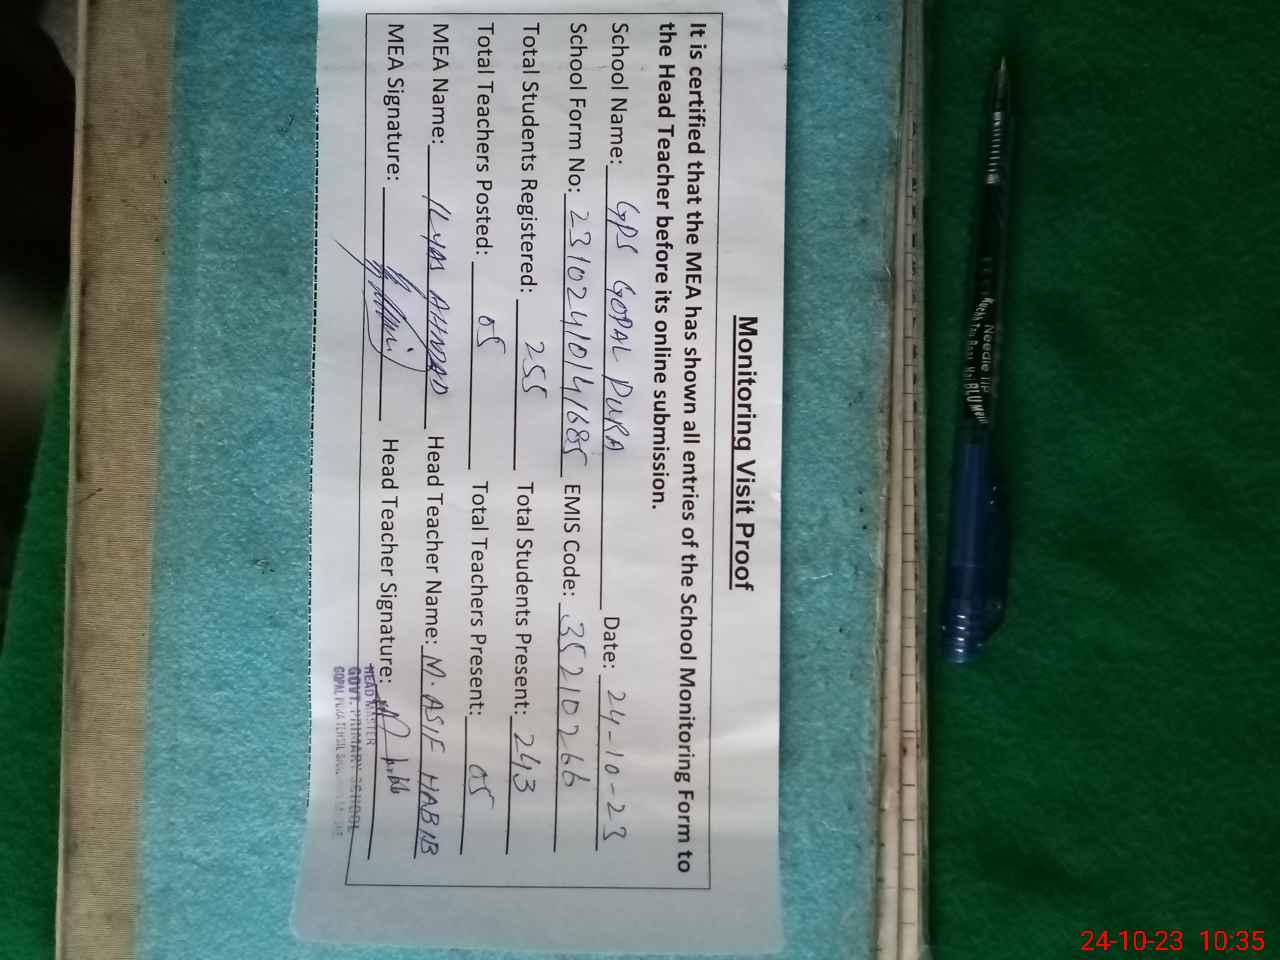 Monitoring Visit Proof
It is certified that the MEA has shown all entries of the School Monitoring Form to
the Head Teacher before its online submission.
School Name: GPS GOPAL PURA Date: 24-10-23
School Form No: 23102410141685 EMIS Code: 35210266
Total Students Registered: 255 Total Students Present: 243
Total Teachers Posted: 05 Total Teachers Present: 05
MEA Name: ILYAS AHMAD Head Teacher Name: M. ASIF HABIB
MEA Signature: Head Teacher Signature:
HEAD MASTER
GOVT. PRIMARY SCHOOL
GOPAL PURA TEHSIL
Needle Tip
BLUE
24-10-23 10:35